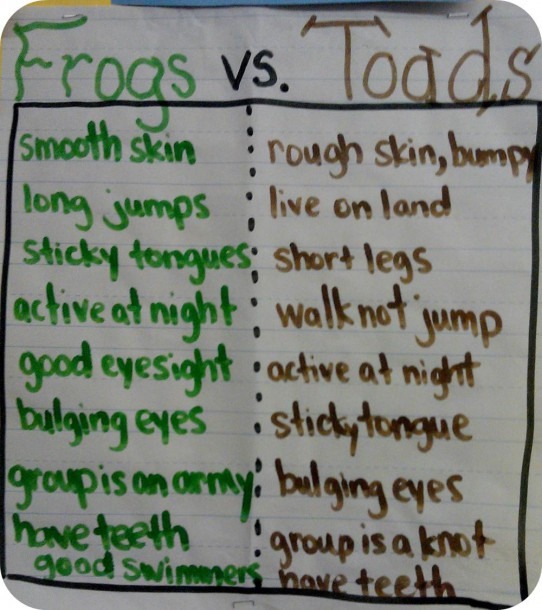 Frogs vs. Toads
smooth skin
long jumps
sticky tongues
active at night
good eyesight
bulging eyes
group is an army
have teeth
good swimmers
rough skin, bumpy
live on land
short legs
walk not jump
active at night
sticky tongue
bulging eyes
group is a knot
have teeth